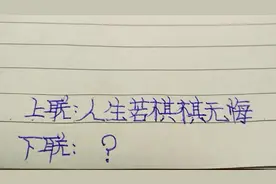 上联:人生若棋棋无悔
下联: ?